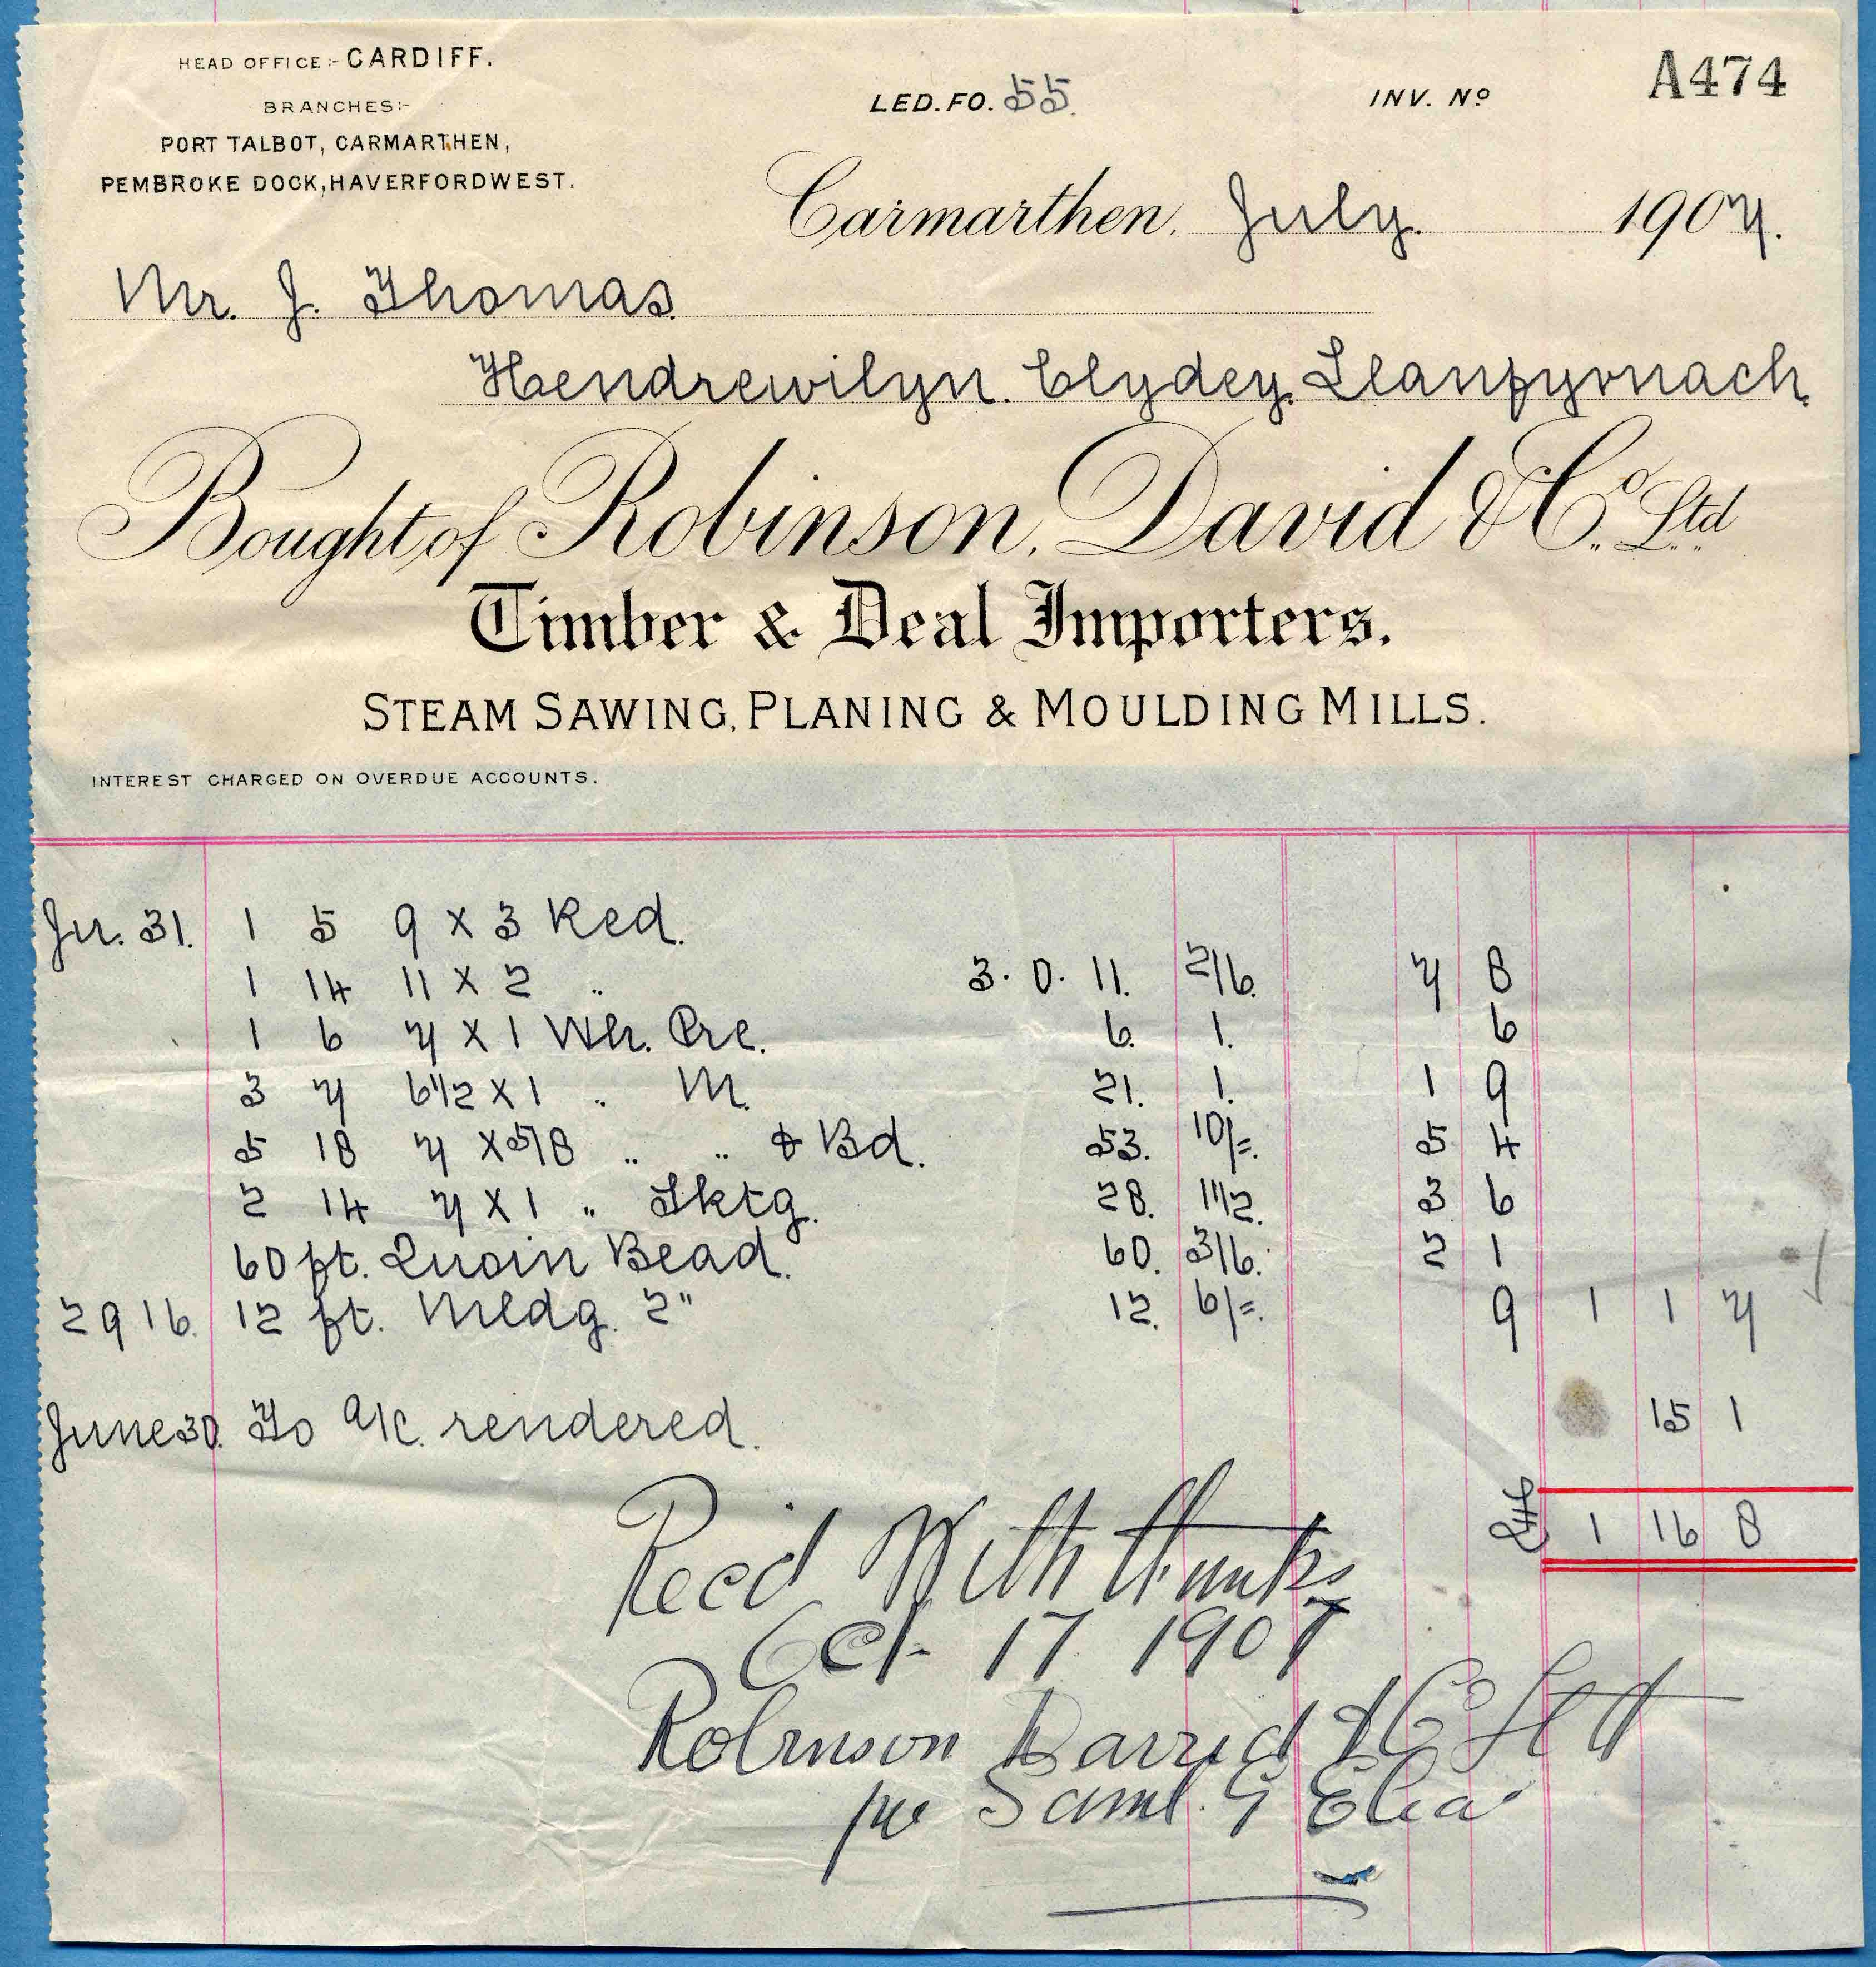 HEAD OFFICE :- CARDIFF.
BRANCHES:-
PORT TALBOT, CARMARTHEN,
PEMBROKE DOCK, HAVERFORDWEST.
LED. FO. 55.
INV. No A474
Carmarthen, July. 1907.
Mr. J. Thomas.
Hendrewilyn. Clydey. Llanfyrnach.
Bought of Robinson, David & Co. Ltd
Timber & Deal Importers.
STEAM SAWING, PLANING & MOULDING MILLS.
INTEREST CHARGED ON OVERDUE ACCOUNTS.
31. 1 5 9 x 3 Red.
1 14 11 x 2 " 3. 0. 11. 2/6. 7 8
1 6 7 x 1 Wh. 6. 1. 6
3 7 6 1/2 x 1 " M. 21. 1. 1 9
5 18 7 x 5/8 " " & Bd. 53. 10/=. 5 4
2 14 7 x 1 " Sktg. 28. 1 1/2. 3 6
60 ft. Quoin Bead. 60. 3/6. 2 1
2916. 12 ft. Mldg. 2" 12. 6/=. 9 1 1 7
June 30. To a/c. rendered. 15 1
1 16 8
Recd With thanks
Oct 17 1907
Robinson David & Co Ltd
per Saml. G